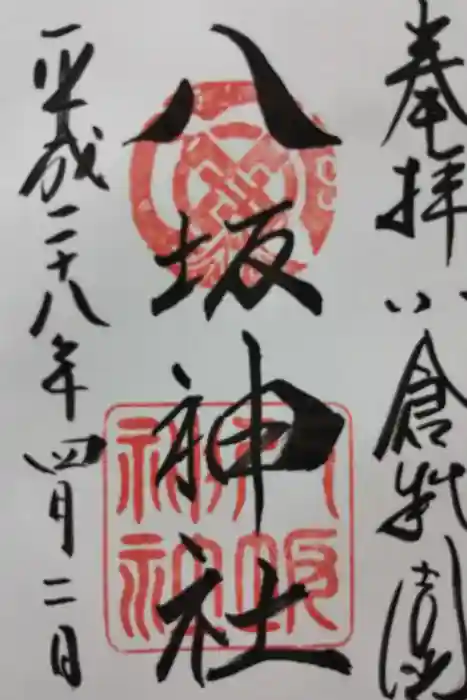 奉拝 小倉祇園
八坂神社
平成二十八年四月二日
八坂神社